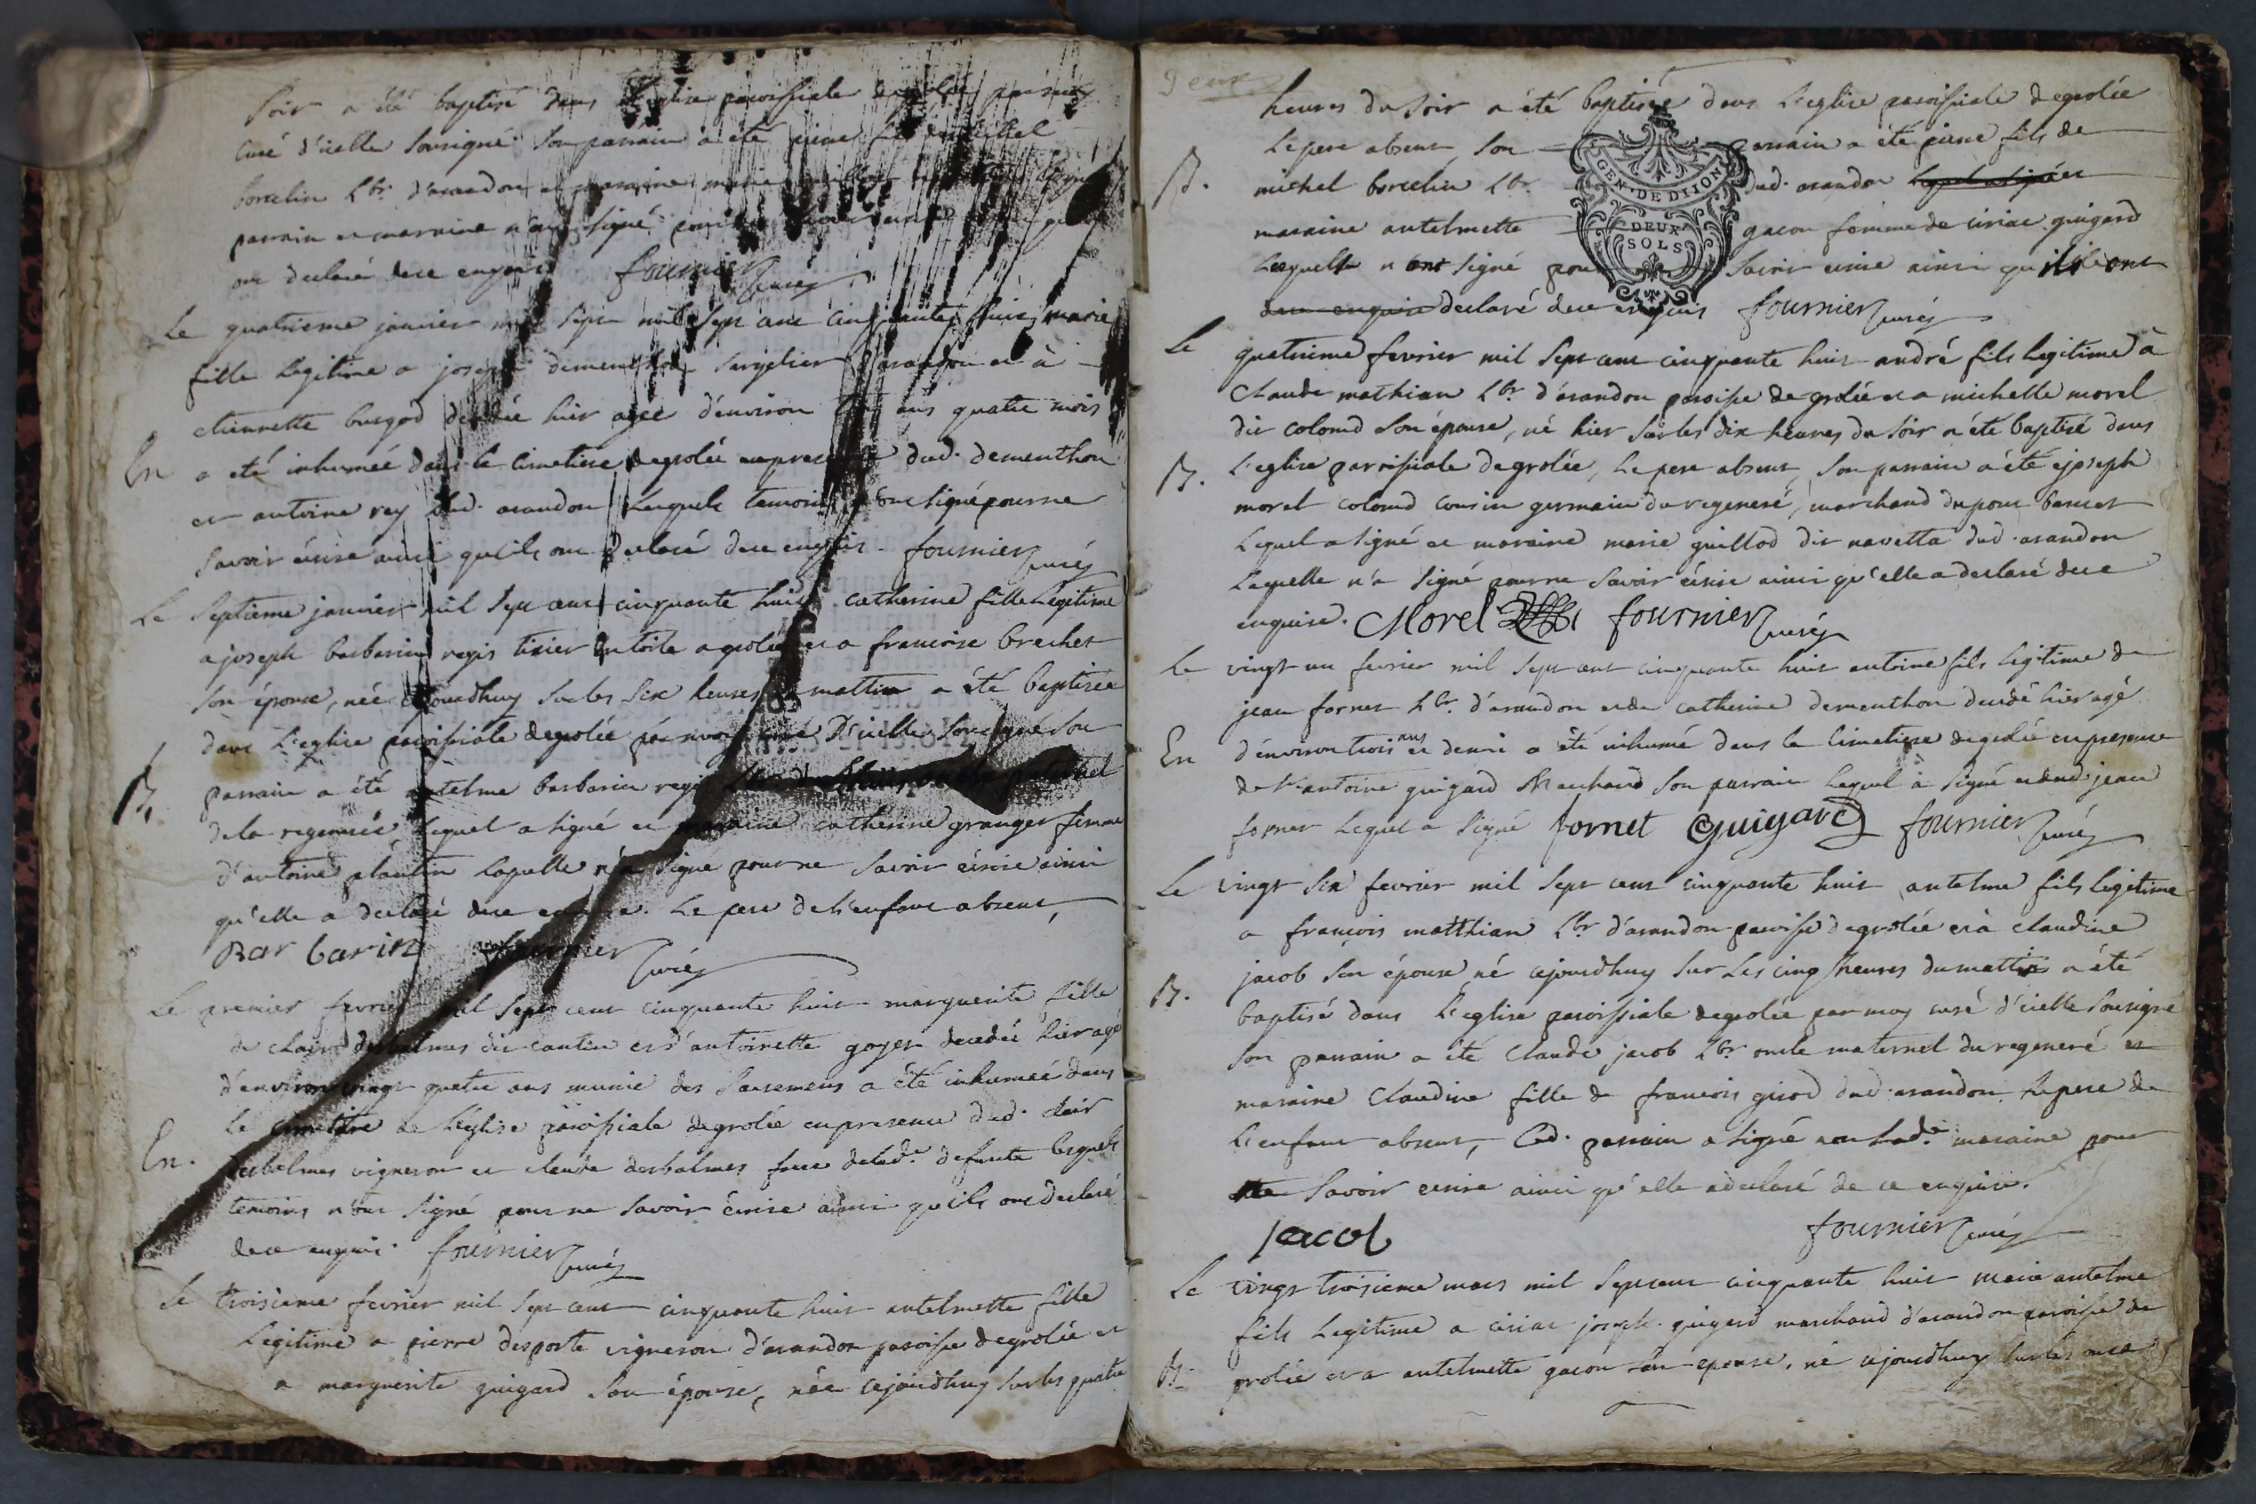 Soir a été baptisé dans l'eglise paroissiale de grolée par moy
Curé d'icelle sousigné son parrain a été pierre fils de michel
borcelin Lbr. d'arandon et marraine marie
parrain et marraine n'ont signé pour
ont declaré de ce enquis fournier curé
Le quatrieme janvier mil sept cent cinquante huit marie
fille Legitime a joseph dementhon d'arandon et à
etiennette burgod decedée hier agée d'environ ans quatre mois
En a été inhumée dans le cimetiere de grolée en presence dud. dementhon
et antoine rey dud. arandon Lesquels temoins n'ont signé pour ne
savoir ecrire ainsi qu'ils ont declaré de ce enquis. fournier curé
Le septieme janvier mil sept cent cinquante huit catherine fille Legitime
a joseph barbarin regis tixier en toile a grolée et a francoise brechet
son épouse, née cejourdhuy sur les six heures du mattin a été baptisée
dans L'eglise paroissiale de grolée par moy curé d'icelle sousigné son
B. parrain a été antelme barbarin regis
de la regenerée Lequel a signé et marraine catherine granger femme
d'antoine plantin laquelle n'a signé pour ne savoir écrire ainsi
qu'elle a declaré de ce enquise. Le pere de l'enfant absent,
Barbarin fournier curé
Le premier fevrier mil sept cent cinquante huit marguerite fille
de clair desbalmes dit cantin et d'antoinette goyet decedée hier agée
d'environ vingt quatre ans munie des sacremens a été inhumée dans
Le cimetiere de L'eglise paroissiale de grolée en presence dud. clair
En. desbalmes vigneron et claude desbalmes frere de lade. defunte lesquels
temoins n'ont signé pour ne savoir écrire ainsi qu'ils ont declaré
de ce enquis. fournier curé
Le troisieme fevrier mil sept cent cinquante huit antelmette fille
Legitime a pierre desporte vigneron d'arandon paroisse de grolée et
a marguerite guigard son épouse, née cejourdhuy sur les quatre
Deux
heures du soir a été baptisée dans L'eglise paroissiale de grolée
Le pere absent son parrain a été pierre fils de
B. michel borcelin Lbr. dud. arandon lequel a signé et
GEN. DE DIJON
DEUX SOLS
maraine antelmette gacon femme de ciriac guigard
Lesquels n'ont signé pour savoir ecrire ainsi qu'ils ont
de ce enquis declaré de ce enquis fournier curé
Le quatrieme fevrier mil sept cent cinquante huit andré fils legitime à
Claude mathian Lbr. d'arandon paroisse de grolée et a michelle morel
dit colomd son épouse, né hier sur les dix heures du soir a été baptisé dans
B. L'eglise paroissiale de grolée, Le pere absent, son parrain a été joseph
morel colomd cousin germain du regeneré, marchand du pont bancet
Lequel a signé et maraine marie guillod dit navetta dud. arandon
Laquelle n'a signé pour ne savoir écrire ainsi qu'elle a declaré de ce
enquise. Morel fournier curé
Le vingt un fevrier mil sept cent cinquante huit antoine fils legitime de
jean fornet Lbr. d'arandon et de catherine dementhon decedé hier agé
En d'environ trois ans et demi a été inhumé dans le cimetiere de grolée en presence
de sr. antoine guigard Marchand son parrain Lequel à signé et dud. jean
fornet Lequel a signé fornet Guigard fournier curé
Le vingt six fevrier mil sept cent cinquante huit antelme fils legitime
a francois matthian Lbr d'arandon paroisse de grolée et à claudine
jacob son épouse né cejourdhuy sur les cinq heures du mattin a été
B. baptisé dans L'eglise paroissiale de grolée par moy curé d'icelle sousigné
son parrain a été claude jacob Lbr oncle maternel du regeneré et
maraine claudine fille de francois girod dud. arandon. Le pere de
L'enfant absent, Led. parrain a signé non lade. maraine pour
ne savoir ecrire ainsi qu'elle a declaré de ce enquise.
Jacob fournier curé
Le vingt troisieme mars mil sept cent cinquante huit marie antelme
fils Legitime a ciriac joseph guigard marchand d'arandon paroisse de
B. grolée et a antelmette gacon son epouse, né cejourdhuy sur les onze